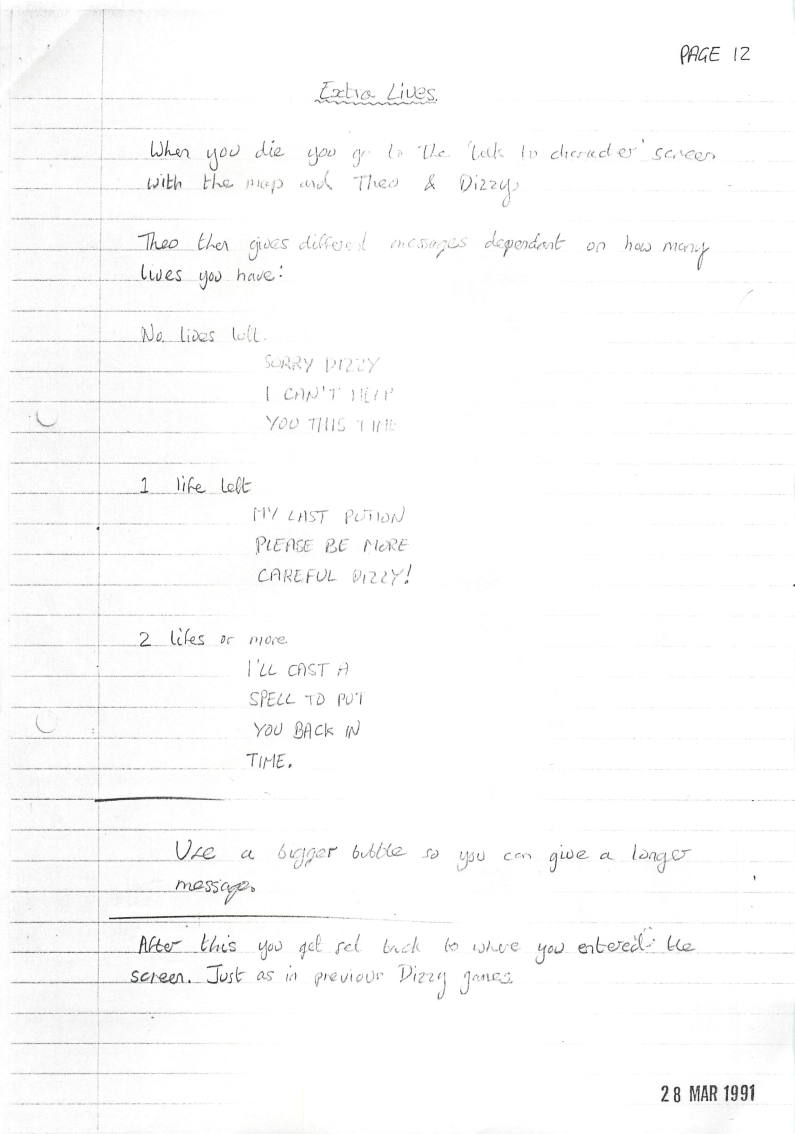 PAGE 12
Extra Lives.
When you die you go to the 'talk to character' screen
with the map and Theo & Dizzy.
Theo then gives different messages dependant on how many
lives you have:
No lives left.
SORRY DIZZY
I CAN'T HELP
YOU THIS TIME
1 life left
MY LAST POTION
PLEASE BE MORE
CAREFUL DIZZY!
2 lifes or more.
I'LL CAST A
SPELL TO PUT
YOU BACK IN
TIME.
Use a bigger bubble so you can give a longer
message.
After this you get set back to where you entered the
screen. Just as in previour Dizzy games.
28 MAR 1991